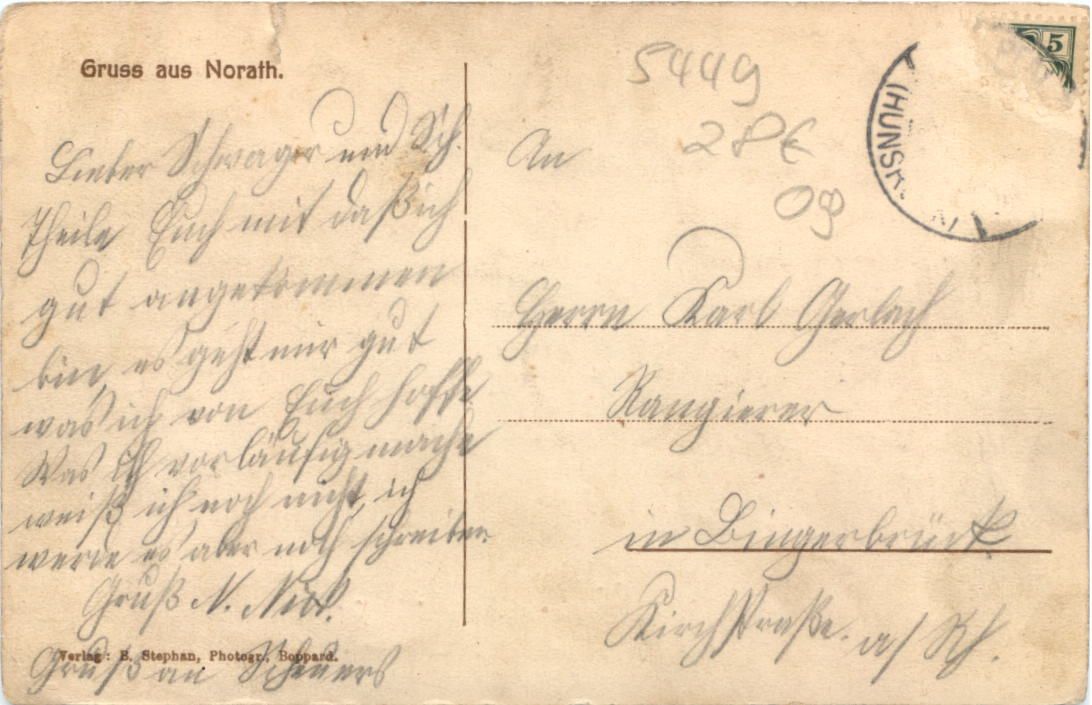 Gruss aus Norath.
Lieber Schwager und Sch.
Theile Euch mit daß ich
gut angekommen
bin, es geht mir gut
was ich von Euch hoffe
Was ich vorläufig mache
weiß ich noch nicht, ich
werde es aber noch schreiben
Gruß N. Nick.
Gruß an Scheuers
Verlag: B. Stephan, Photogr., Boppard.
5449
28€
09
5
(HUNSR
An
Herrn Karl Gerlach
Rangierer
in Bingerbrück
Kirchstraße. a/Rh.